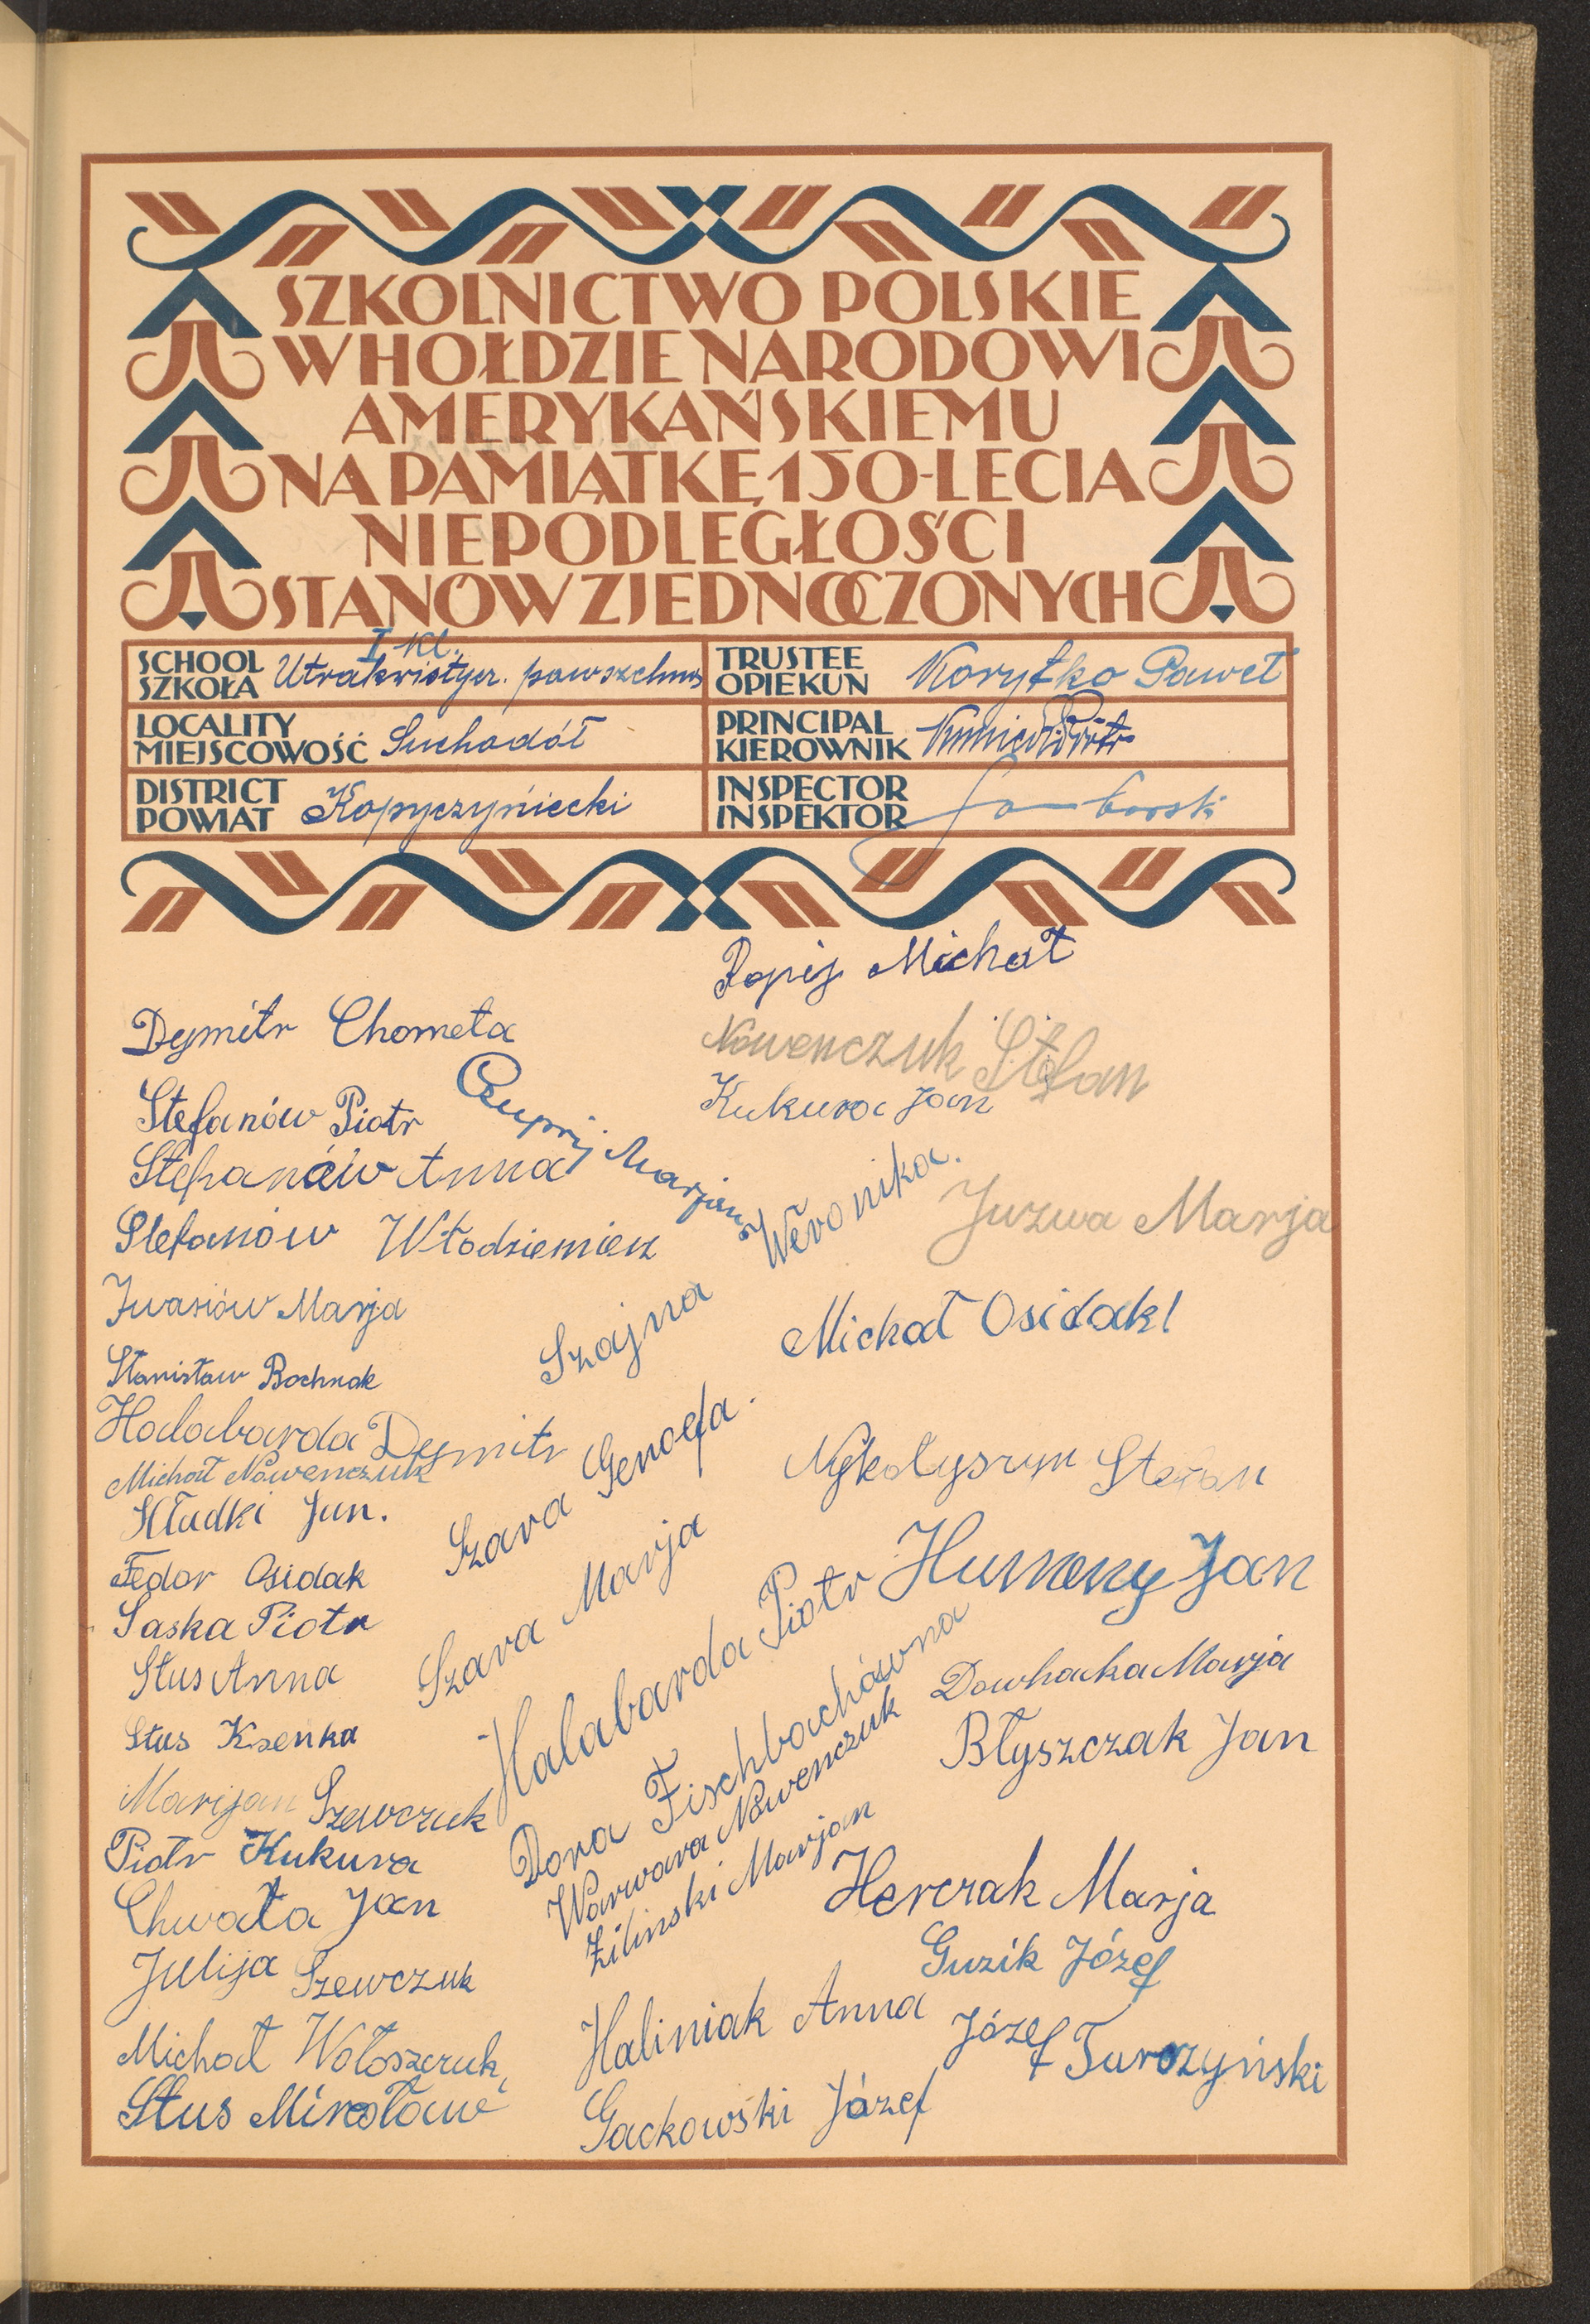 SZKOLNICTWO POLSKIE
W HOŁDZIE NARODOWI
AMERYKAŃSKIEMU
NA PAMIĄTKĘ 150-LECIA
NIEPODLEGŁOŚCI
STANÓW ZJEDNOCZONYCH
I kl.
SCHOOL
SZKOŁA
Utrakwistycz. powszechna
TRUSTEE
OPIEKUN
Korytko Paweł
LOCALITY
MIEJSCOWOŚĆ
Suchodół
PRINCIPAL
KIEROWNIK
Piotr
DISTRICT
POWIAT
Kopyczyniecki
INSPECTOR
INSPEKTOR
Michał
Dymitr Chometa
Nowenczuk Stefan
Kukura Jan
Stefanów Piotr
Czuprij Marjan
Stefanów Anna
Stefanów Włodziemierz
Szajna Weronika.
Juzwa Marja
Iwasiów Marja
Michał Osidak
Stanisław Bochnak
Halabarda Dymitr
Michał Nowenczuk
Szara Genoefa.
Nykołyszyn Stefan
Hładki Jan.
Fedor Osidak
Szara Marja
Humeny Jan
Saska Piotr
Halabarda Piotr
Stus Anna
Dowhaka Marja
Stus Ksenka
Dora Fischbachówna
Błyszczak Jan
Marijan Szewczuk
Warwara Nowenczuk
Piotr Kukura
Żilinski Marjan
Herczak Marja
Chwała Jan
Guzik Józef
Julija Szewczuk
Haliniak Anna
Józef Turczyński
Michał Wołoszczuk
Gackowski Józef
Stus Mirosław